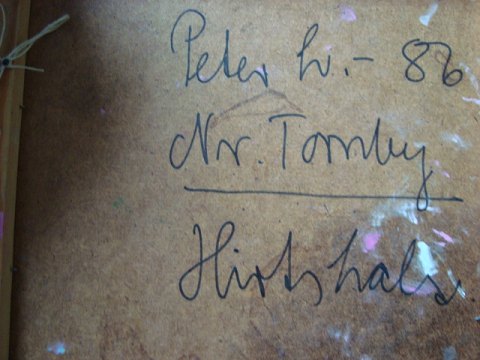 Peter Lv.- 86
Nr. Tornby
Hirtshals